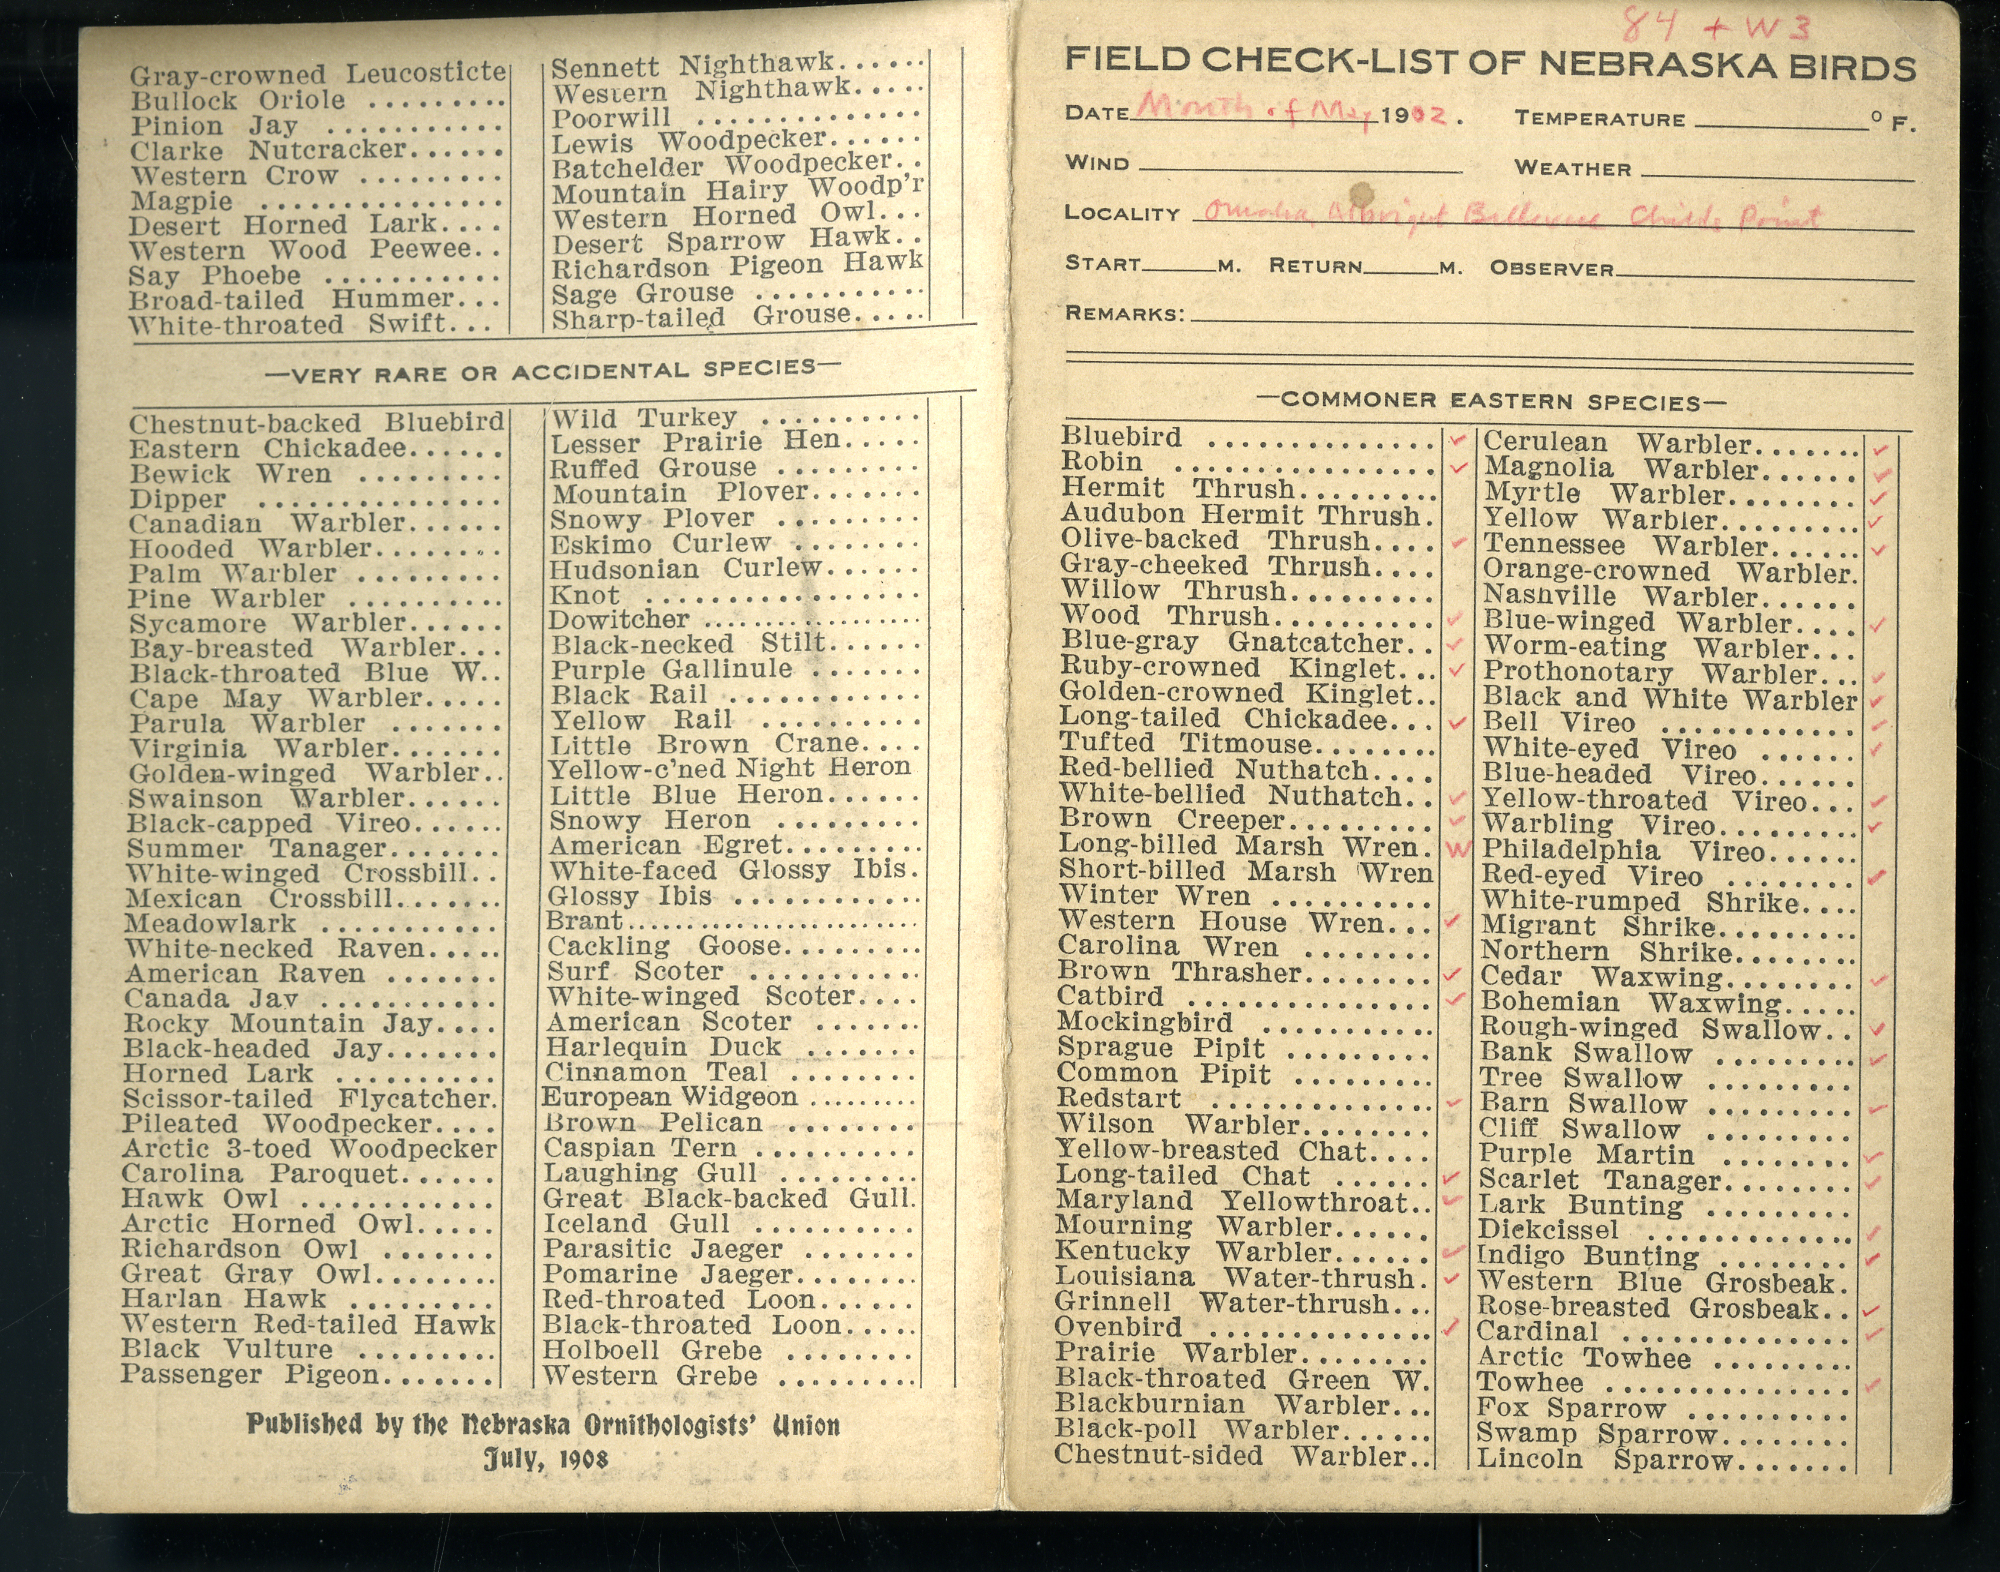 Gray-crowned Leucosticte
Bullock Oriole .........
Pinion Jay ...........
Clarke Nutcracker......
Western Crow .........
Magpie ...............
Desert Horned Lark....
Western Wood Peewee..
Say Phoebe ...........
Broad-tailed Hummer...
White-throated Swift...
Sennett Nighthawk......
Western Nighthawk.....
Poorwill ..............
Lewis Woodpecker......
Batchelder Woodpecker..
Mountain Hairy Woodp'r
Western Horned Owl...
Desert Sparrow Hawk..
Richardson Pigeon Hawk
Sage Grouse ...........
Sharp-tailed Grouse.....
—VERY RARE OR ACCIDENTAL SPECIES—
Chestnut-backed Bluebird
Eastern Chickadee......
Bewick Wren .........
Dipper ...............
Canadian Warbler......
Hooded Warbler........
Palm Warbler .........
Pine Warbler ..........
Sycamore Warbler......
Bay-breasted Warbler...
Black-throated Blue W..
Cape May Warbler.....
Parula Warbler .......
Virginia Warbler.......
Golden-winged Warbler..
Swainson Warbler......
Black-capped Vireo......
Summer Tanager.......
White-winged Crossbill..
Mexican Crossbill.......
Meadowlark ...........
White-necked Raven.....
American Raven .......
Canada Jay ...........
Rocky Mountain Jay....
Black-headed Jay.......
Horned Lark ..........
Scissor-tailed Flycatcher.
Pileated Woodpecker....
Arctic 3-toed Woodpecker
Carolina Paroquet......
Hawk Owl ............
Arctic Horned Owl.....
Richardson Owl .......
Great Gray Owl........
Harlan Hawk .........
Western Red-tailed Hawk
Black Vulture .........
Passenger Pigeon.......
Wild Turkey ..........
Lesser Prairie Hen.....
Ruffed Grouse .........
Mountain Plover.......
Snowy Plover .........
Eskimo Curlew ........
Hudsonian Curlew......
Knot .................
Dowitcher ....................
Black-necked Stilt......
Purple Gallinule .......
Black Rail ............
Yellow Rail ..........
Little Brown Crane....
Yellow-c'ned Night Heron
Little Blue Heron......
Snowy Heron .........
American Egret.........
White-faced Glossy Ibis.
Glossy Ibis ............
Brant...........................
Cackling Goose.........
Surf Scoter ...........
White-winged Scoter....
American Scoter .......
Harlequin Duck .......
Cinnamon Teal ........
European Widgeon .........
Brown Pelican ........
Caspian Tern ..........
Laughing Gull .........
Great Black-backed Gull.
Iceland Gull ..........
Parasitic Jaeger ........
Pomarine Jaeger........
Red-throated Loon......
Black-throated Loon.....
Holboell Grebe ........
Western Grebe .........
Published by the Nebraska Ornithologists' Union
July, 1908
84 + W3
FIELD CHECK-LIST OF NEBRASKA BIRDS
DATE Month of May 1902. TEMPERATURE ° F.
WIND WEATHER
LOCALITY Omaha Albright Bellevue Childs Point
START M. RETURN M. OBSERVER
REMARKS:
—COMMONER EASTERN SPECIES—
Bluebird ............... ✓
Robin ................. ✓
Hermit Thrush..........
Audubon Hermit Thrush.
Olive-backed Thrush.... ✓
Gray-cheeked Thrush....
Willow Thrush.........
Wood Thrush.......... ✓
Blue-gray Gnatcatcher.. ✓
Ruby-crowned Kinglet... ✓
Golden-crowned Kinglet..
Long-tailed Chickadee... ✓
Tufted Titmouse........
Red-bellied Nuthatch....
White-bellied Nuthatch.. ✓
Brown Creeper......... ✓
Long-billed Marsh Wren. W
Short-billed Marsh Wren
Winter Wren ..........
Western House Wren... ✓
Carolina Wren ........
Brown Thrasher........ ✓
Catbird ................ ✓
Mockingbird ...........
Sprague Pipit .........
Common Pipit .........
Redstart .............. ✓
Wilson Warbler........
Yellow-breasted Chat....
Long-tailed Chat ...... ✓
Maryland Yellowthroat.. ✓
Mourning Warbler......
Kentucky Warbler...... ✓
Louisiana Water-thrush. ✓
Grinnell Water-thrush...
Ovenbird .............. ✓
Prairie Warbler........
Black-throated Green W.
Blackburnian Warbler...
Black-poll Warbler......
Chestnut-sided Warbler..
Cerulean Warbler....... ✓
Magnolia Warbler...... ✓
Myrtle Warbler........ ✓
Yellow Warbler......... ✓
Tennessee Warbler...... ✓
Orange-crowned Warbler.
Nashville Warbler......
Blue-winged Warbler.... ✓
Worm-eating Warbler...
Prothonotary Warbler... ✓
Black and White Warbler ✓
Bell Vireo ............ ✓
White-eyed Vireo ...... ✓
Blue-headed Vireo......
Yellow-throated Vireo... ✓
Warbling Vireo......... ✓
Philadelphia Vireo......
Red-eyed Vireo ........ ✓
White-rumped Shrike....
Migrant Shrike.........
Northern Shrike........
Cedar Waxwing........ ✓
Bohemian Waxwing.....
Rough-winged Swallow.. ✓
Bank Swallow ......... ✓
Tree Swallow .........
Barn Swallow ......... ✓
Cliff Swallow .........
Purple Martin ........ ✓
Scarlet Tanager........ ✓
Lark Bunting .........
Dickcissel ............. ✓
Indigo Bunting ........ ✓
Western Blue Grosbeak.
Rose-breasted Grosbeak.. ✓
Cardinal .............. ✓
Arctic Towhee .........
Towhee ............... ✓
Fox Sparrow ..........
Swamp Sparrow........
Lincoln Sparrow.......